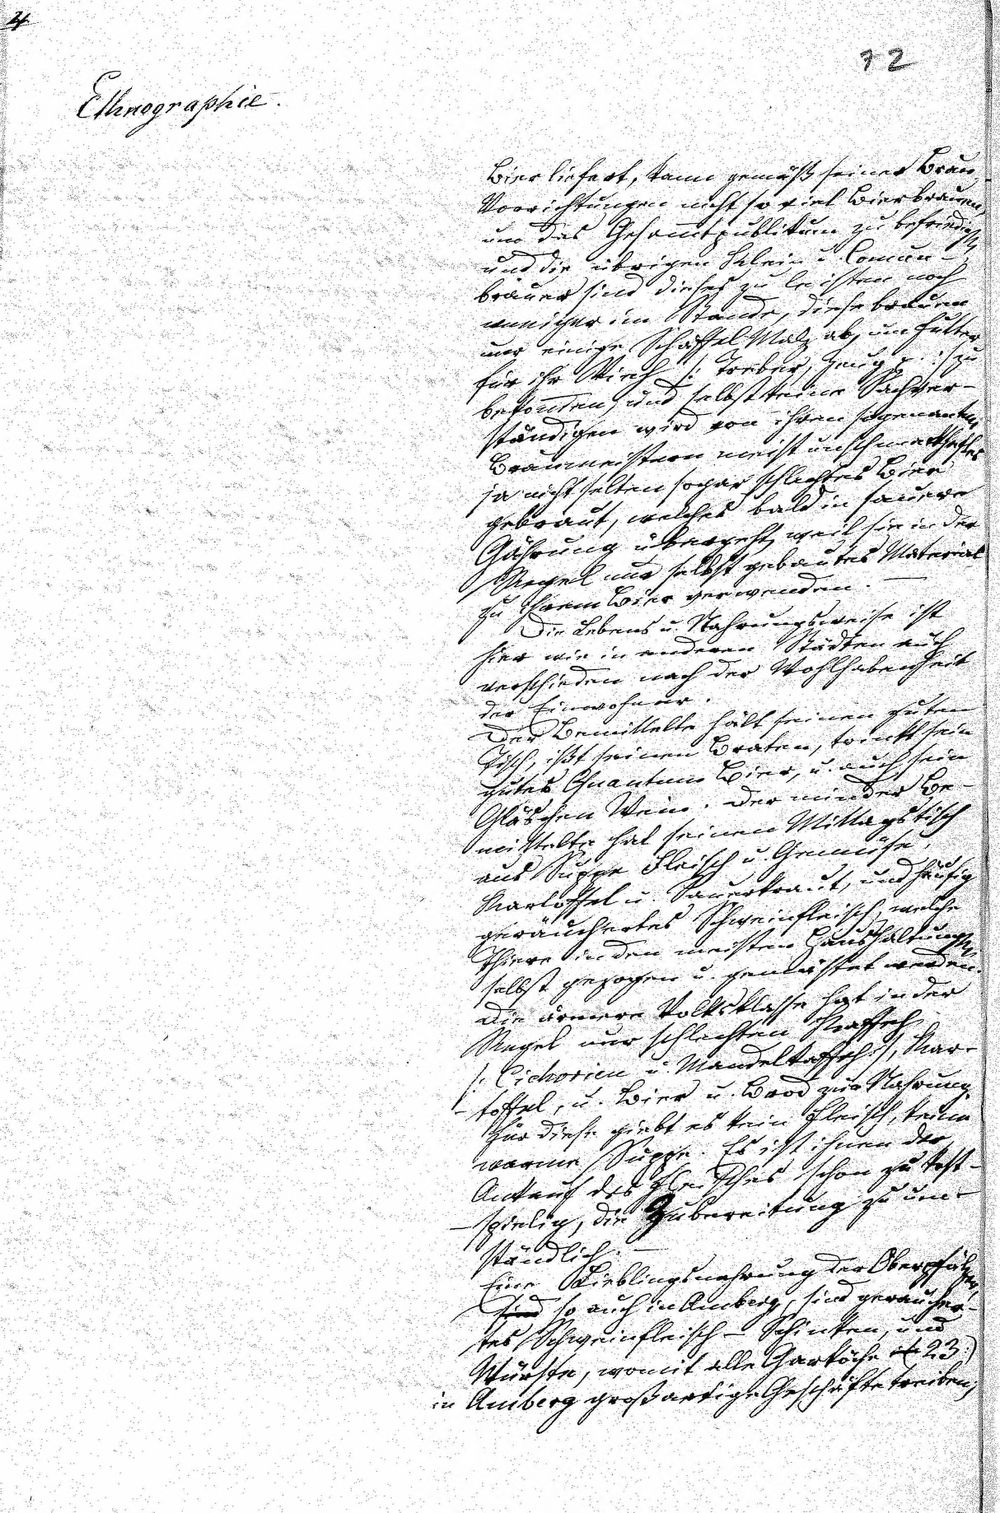 4
72
Ethnographie.
Bier liefert, kann gemäß seiner Brau
Vorrichtungen nicht so viel Bier brauen,
um das Gesammtpublikum zu befriedig̅
und die übrigen Klein u. Comun-
bräuer sind dieses zu leisten noch
weniger im Stande, diese brauen
nur einige Schäffel Malz ab, um Futter
für ihr Vieh /: Treber, Zeug :/ zu
bekommen, und selbst keine Sachver-
ständigen wird von ihren sogenannten
Braumeistern meist unschmackhaftes
ja nicht selten sogar schlechtes Bier
gebraut, welches bald in sauere
Gährung übergeht, weil sie in der
Regel nur selbst gebautes Material
zu ihrem Bier verwenden. —
Die Lebens u. Nahrungsweise ist
hier wie in anderen Städten auch
verschieden nach der Wohlhabenheit
der Einwohner.
Der Bemittelte hält seinen guten
Tisch, ißt seinen Braten, trinkt sein
gutes Quantum Bier, u. auch sein
Gläschen Wein. Der minder Be-
mittelte hat seinen Mittagstisch
aus Suppe Fleisch u. Gemüse,
Kartoffel u. Sauerkraut, und häufig
geräuchertes Schweinfleisch, welche
Thiere in den meisten Haushaltung̅
selbst gezogen u. gemästet werden.
Die ärmere Volksklasse hat in der
Regel nur schlechten Kaffeh
/: Cichorien u. Mandelkaffeh :/, Kar-
toffel, u. Bier u. Brod zur Nahrung,
Für diese giebt es kein Fleisch, keine
warme Suppe. Es ist ihnen der
Ankauf des Fleisches schon zu kost-
spielig, die Zubereitung zu um-
ständlich. —
Eine Lieblingsnahrung der Oberpfälzer,
sind so auch in Amberg, sind geräucher-
tes Schweinfleisch – Schinken, und
Würste, womit alle Garköche (: 23 :)
in Amberg großartige Geschäfte treiben,